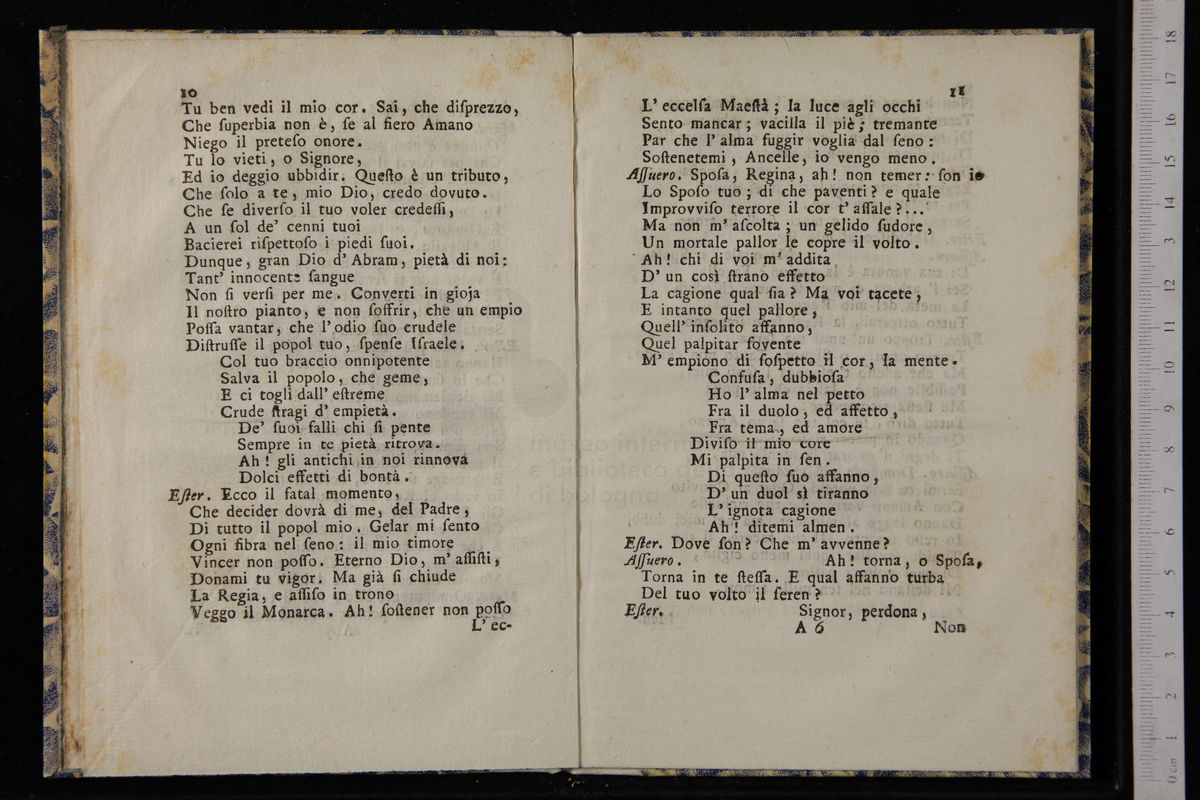 10
Tu ben vedi il mio cor. Sai, che diſprezzo,
Che ſuperbia non è, ſe al fiero Amano
Niego il preteſo onore.
Tu lo vieti, o Signore,
Ed io deggio ubbidir. Queſto è un tributo,
Che ſolo a te, mio Dio, credo dovuto.
Che ſe diverſo il tuo voler credeſſi,
A un ſol de' cenni tuoi
Bacierei riſpettoſo i piedi ſuoi.
Dunque, gran Dio d' Abram, pietà di noi:
Tant' innocente ſangue
Non ſi verſi per me. Converti in gioja
Il noſtro pianto, e non ſoffrir, che un empio
Poſſa vantar, che l' odio ſuo crudele
Diſtruſſe il popol tuo, ſpenſe Iſraele.
Col tuo braccio onnipotente
Salva il popolo, che geme,
E ci togli dall' eſtreme
Crude ſtragi d' empietà.
De' ſuoi falli chi ſi pente
Sempre in te pietà ritrova.
Ah! gli antichi in noi rinnova
Dolci effetti di bontà.
Eſter. Ecco il fatal momento,
Che decider dovrà di me, del Padre,
Di tutto il popol mio. Gelar mi ſento
Ogni fibra nel ſeno: il mio timore
Vincer non poſſo. Eterno Dio, m' aſſiſti,
Donami tu vigor. Ma già ſi chiude
La Regia, e aſſiſo in trono
Veggo il Monarca. Ah! ſoſtener non poſſo
L' ec-
11
L' eccelſa Maeſtà; la luce agli occhi
Sento mancar; vacilla il piè; tremante
Par che l' alma fuggir voglia dal ſeno:
Soſtenetemi, Ancelle, io vengo meno.
Aſſuero. Spoſa, Regina, ah! non temer: ſon io
Lo Spoſo tuo; di che paventi? e quale
Improvviſo terrore il cor t' aſſale?...
Ma non m' aſcolta; un gelido ſudore,
Un mortale pallor le copre il volto.
Ah! chi di voi m' addita
D' un così ſtrano effetto
La cagione qual ſia? Ma voi tacete,
E intanto quel pallore,
Quell' inſolito affanno,
Quel palpitar ſovente
M' empiono di ſoſpetto il cor, la mente.
Confuſa, dubbioſa
Ho l' alma nel petto
Fra il duolo, ed affetto,
Fra tema, ed amore
Diviſo il mio core
Mi palpita in ſen.
Di queſto ſuo affanno,
D' un duol sì tiranno
L' ignota cagione
Ah! ditemi almen.
Eſter. Dove ſon? Che m' avvenne?
Aſſuero. Ah! torna, o Spoſa,
Torna in te ſteſſa. E qual affanno turba
Del tuo volto il ſeren?
Eſter. Signor, perdona,
A 6 Non